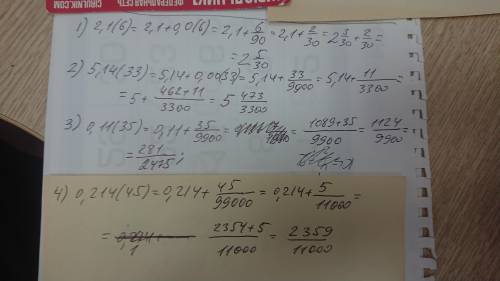 ФЕДЕРАЛЬНАЯ СЕТЬ
CIRULNIK.COM
1) 2,1(6) = 2,1+0,0(6) = 2,1+ 6/90 = 2,1+ 2/30 = 2 3/30 + 2/30 =
= 2 5/30
2) 5,14(33) = 5,14+0,00(33) = 5,14+ 33/9900 = 5,14+ 11/3300 =
= 5+ 462+11/3300 = 5 473/3300
3) 0,11(35) = 0,11+ 35/9900 = 1089+35/9900 = 1124/9900 =
= 281/2475;
4) 0,214(45) = 0,214+ 45/99000 = 0,214+ 5/11000 =
= 2354+5/11000 = 2359/11000